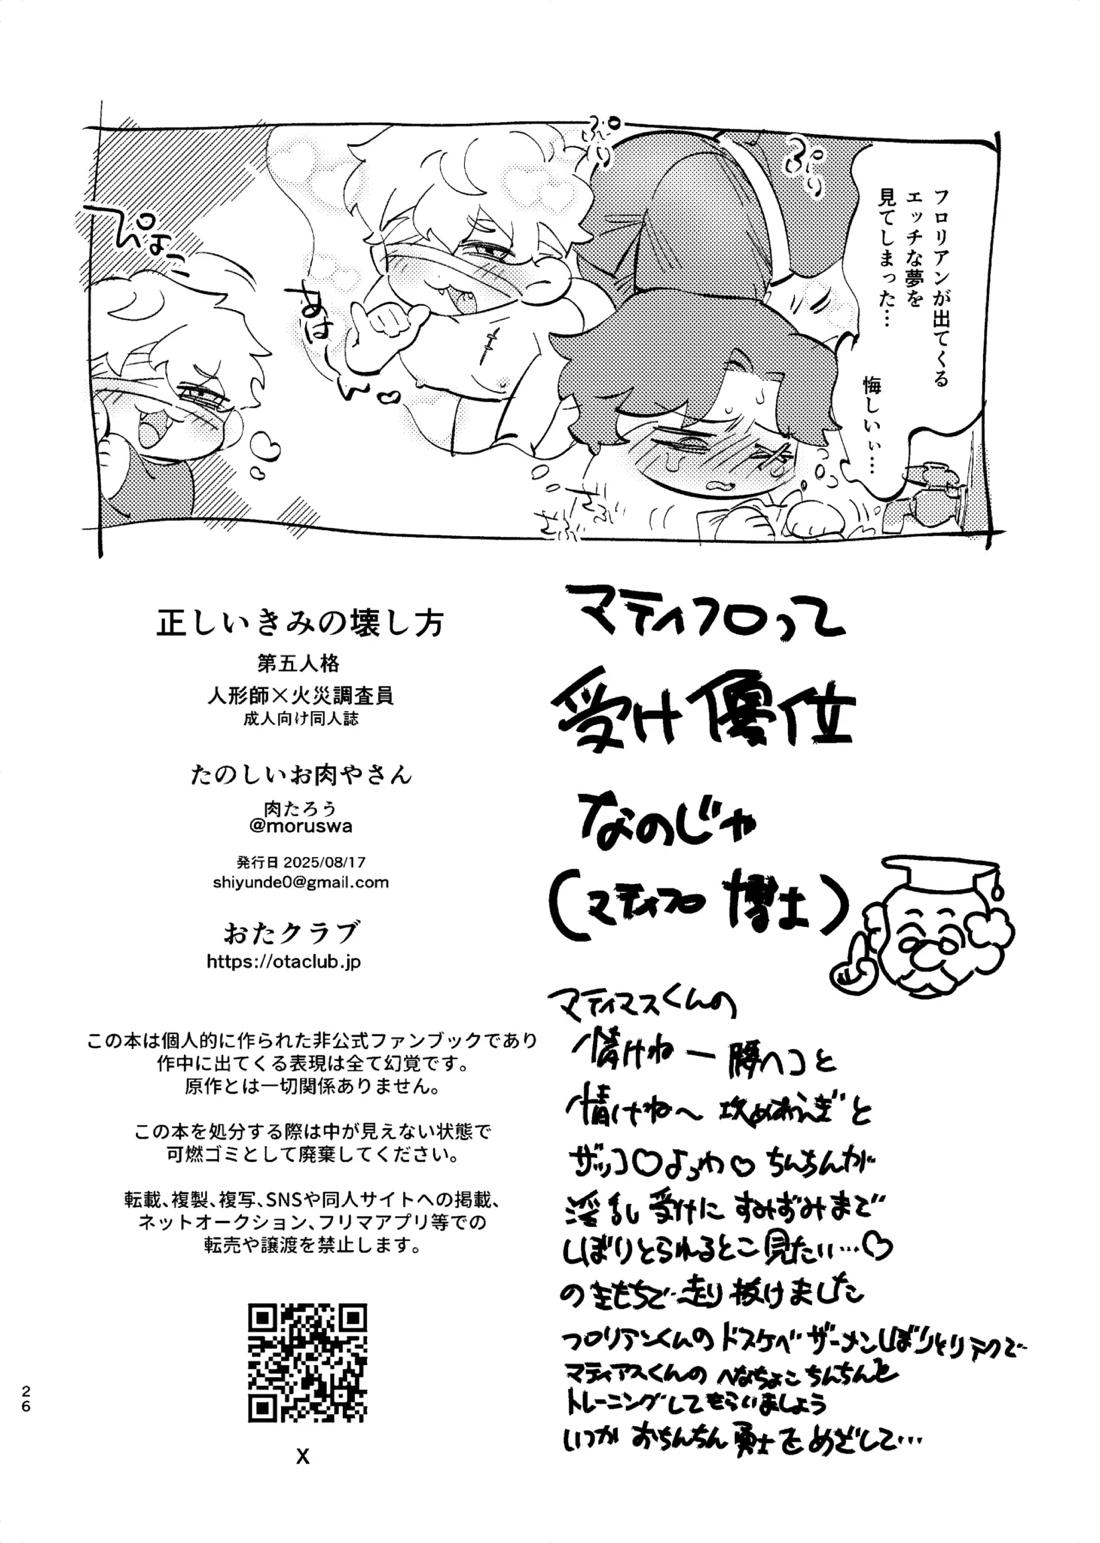 フロリアンが出てくる
エッチな夢を
見てしまった…
悔しいぃ…
ぷり
ぷり
ぴょこっ
あはっ
ん
マティフロって
受け優位
なのじゃ
(マティフロ 博士)
マティアスくんの
情けねー腰ヘコと
情けね〜攻めあえぎと
ザッコ♡よっわ♡ちんちんが
淫乱受けにすみずみまで
しぼりとられるとこ見たい…♡
のきもちで走り抜けました
フロリアンくんのドスケベザーメンしぼりとりテクで
マティアスくんのへなちょこちんちんを
トレーニングしてもらいましょう
いつかおちんちん勇士をめざして…
正しいきみの壊し方
第五人格
人形師×火災調査員
成人向け同人誌
たのしいお肉やさん
肉たろう
@moruswa
発行日 2025/08/17
shiyunde0@gmail.com
おたクラブ
https://otaclub.jp
この本は個人的に作られた非公式ファンブックであり
作中に出てくる表現は全て幻覚です。
原作とは一切関係ありません。
この本を処分する際は中が見えない状態で
可燃ゴミとして廃棄してください。
転載、複製、複写、SNSや同人サイトへの掲載、
ネットオークション、フリマアプリ等での
転売や譲渡を禁止します。
X
26